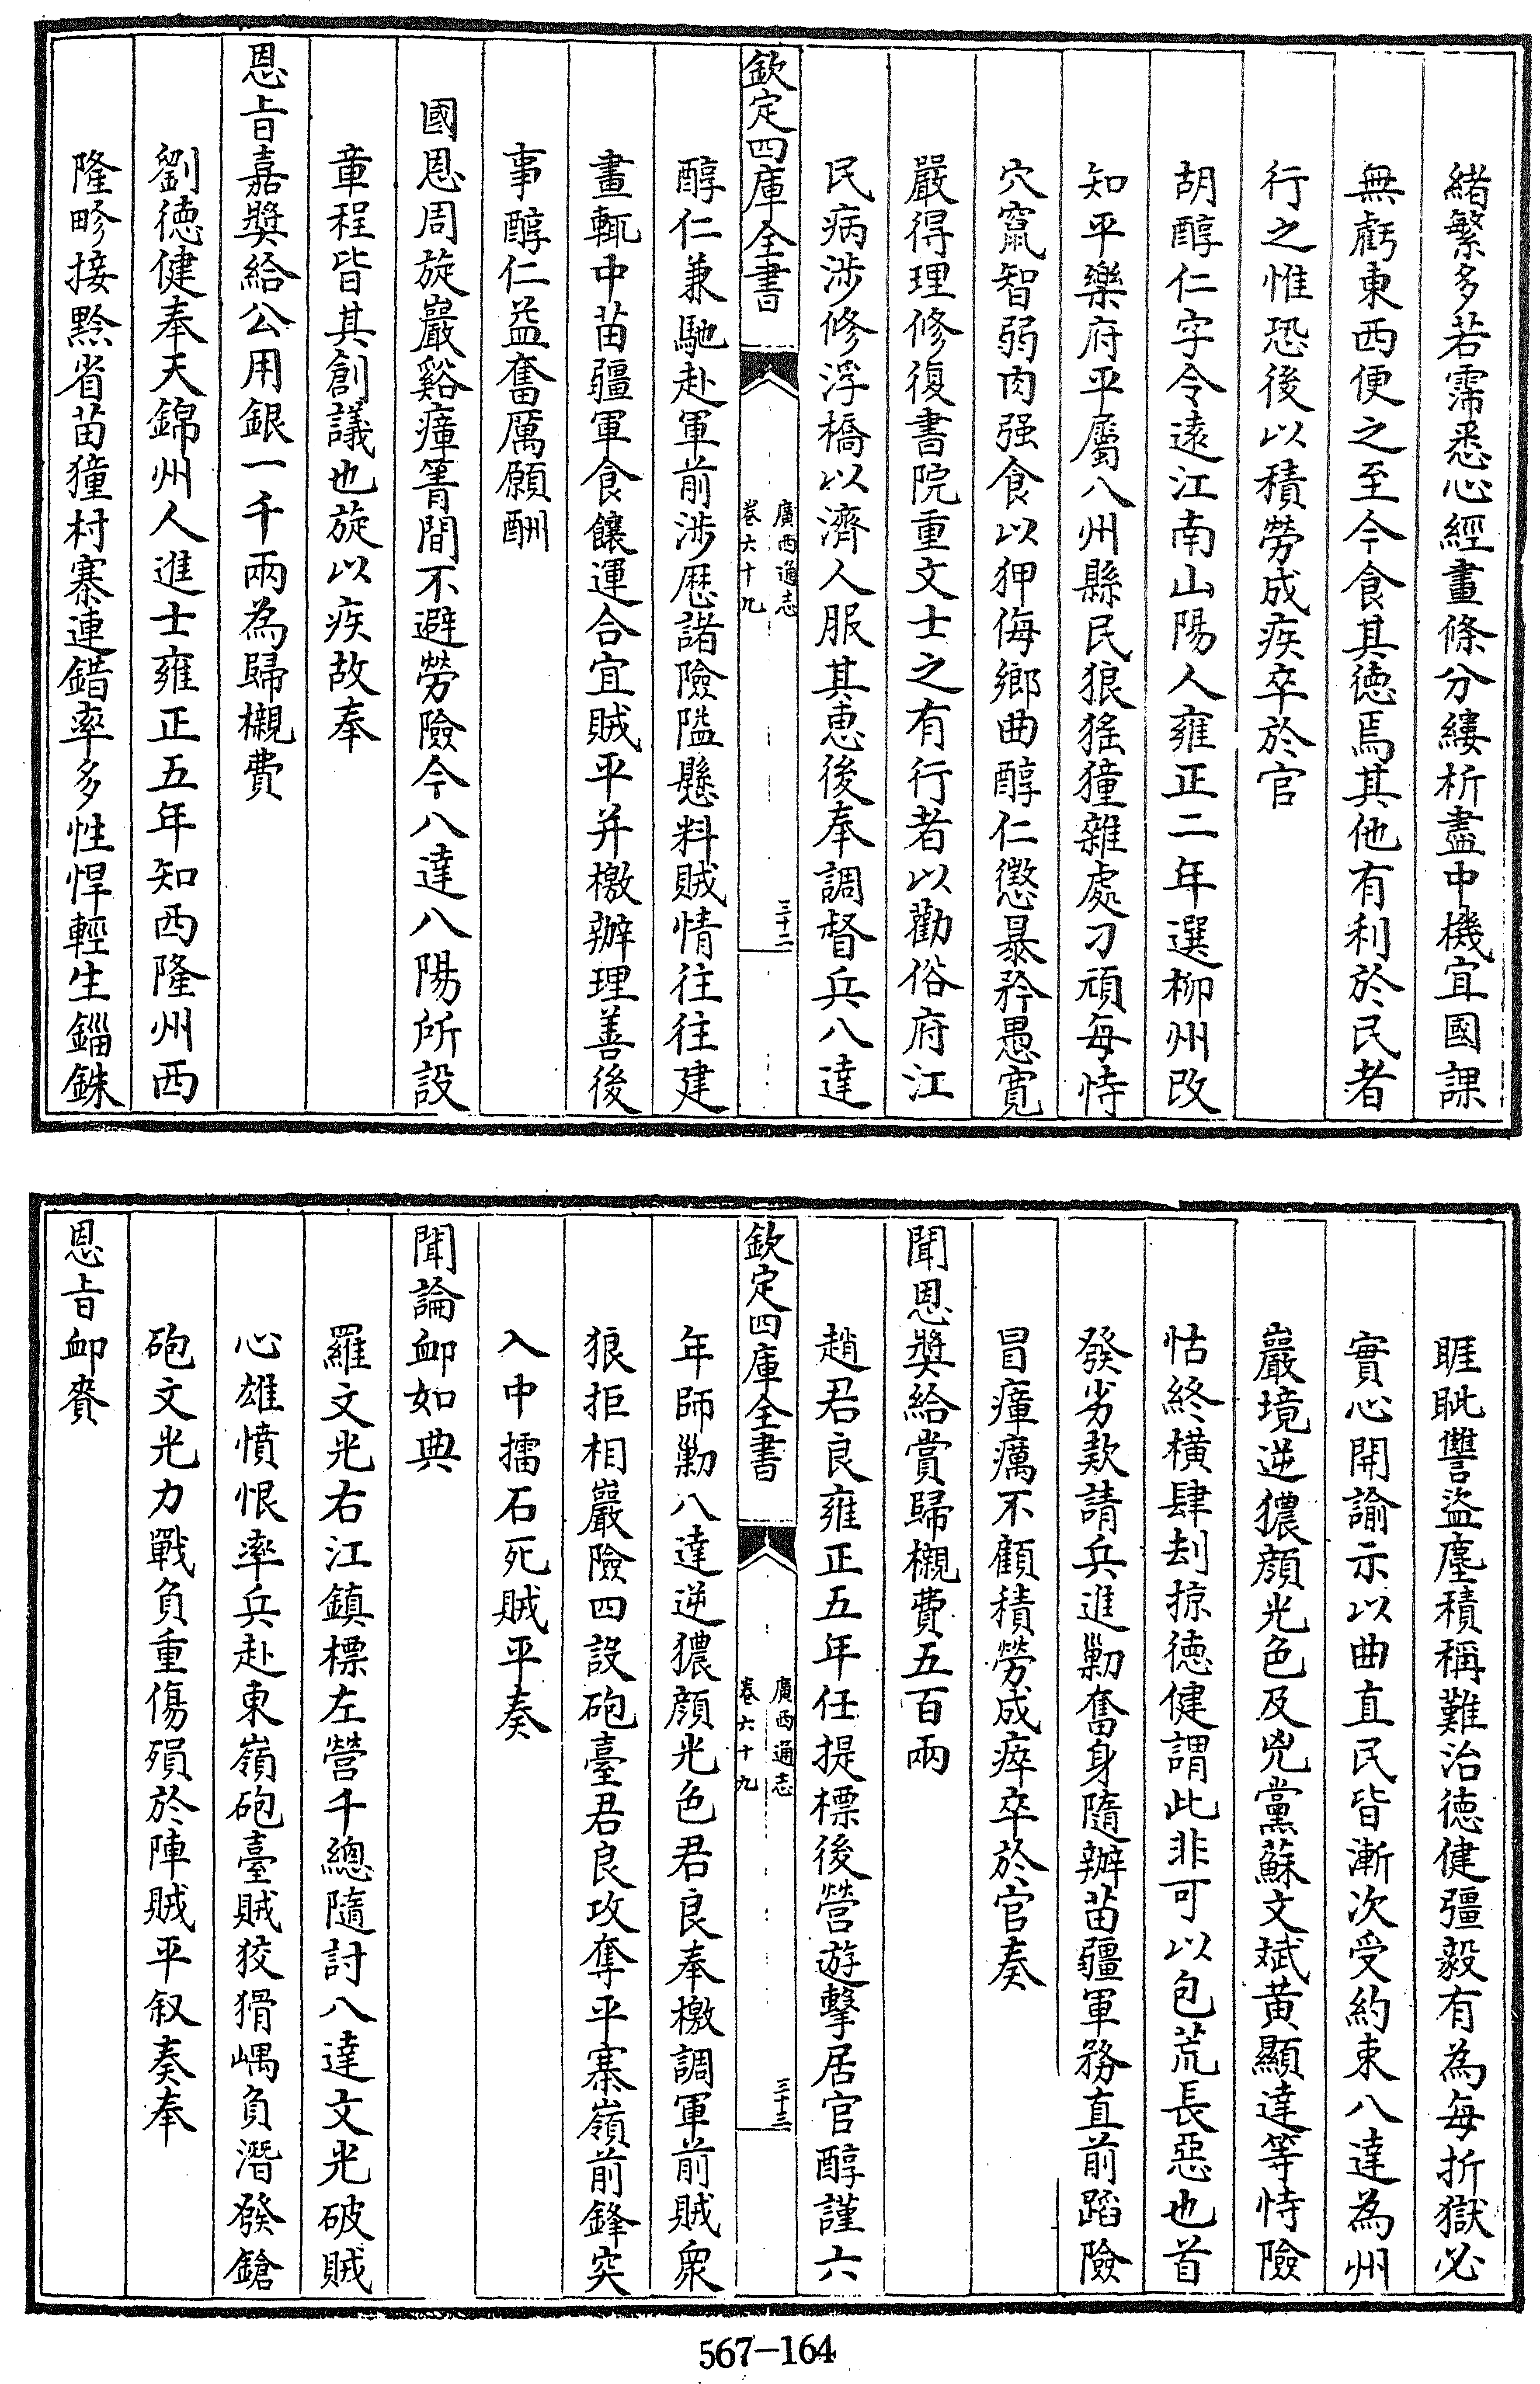 緒繁多若霈悉心經畫條分縷析盡中機宜國課
無虧東西便之至今食其徳焉其他有利於民者
行之惟恐後以積勞成疾卒於官
胡醇仁字令遠江南山陽人雍正二年選柳州改
知平樂府平屬八州縣民狼猺獞雜處刁頑每恃
穴竄智弱肉强食以狎侮鄉曲醇仁懲暴矜愚寛
嚴得理修復書院重文士之有行者以勸俗府江
民病涉修浮橋以濟人服其恵後奉調督兵八達
欽定四庫全書
廣西通志
卷六十九
三十二
醇仁兼馳赴軍前涉歴諸險隘懸料賊情往往建
畫輒中苗疆軍食饟運合宜賊平并檄辦理善後
事醇仁益奮厲願酬
國恩周旋巖谿瘴箐間不避勞險今八達八陽所設
章程皆其創議也旋以疾故奉
恩旨嘉奬給公用銀一千兩為歸櫬費
劉徳健奉天錦州人進士雍正五年知西隆州西
隆畛接黔省苗獞村寨連錯率多性悍輕生錙銖
睚眦讐盜塵積稱難治徳健彊毅有為每折獄必
實心開諭示以曲直民皆漸次受約束八達為州
巖境逆獞顔光色及兇黨蘇文斌黄顯達等恃險
怙終橫肆刦掠徳健謂此非可以包荒長惡也首
發劣欵請兵進勦奮身隨辦苗疆軍務直前蹈險
冒瘴癘不顧積勞成瘁卒於官奏
聞恩奬給賞歸櫬費五百兩
趙君良雍正五年任提標後營遊擊居官醇謹六
欽定四庫全書
廣西通志
卷六十九
三十三
年師勦八達逆獞顔光色君良奉檄調軍前賊衆
狼拒相巖險四設砲臺君良攻奪平寨嶺前鋒突
入中擂石死賊平奏
聞論䘏如典
羅文光右江鎮標左營千總隨討八達文光破賊
心雄憤恨率兵赴東嶺砲臺賊狡猾嵎負潛發鎗
砲文光力戰負重傷殞於陣賊平叙奏奉
恩旨䘏賚
567—164